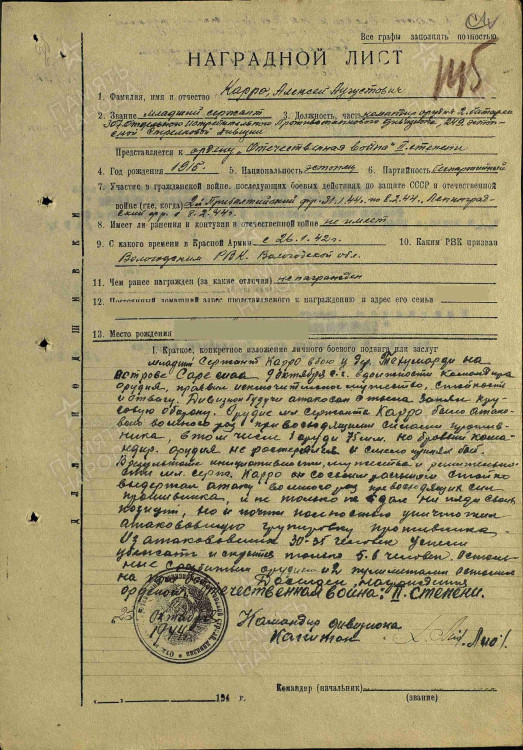 Все графы заполнять полностью
НАГРАДНОЙ ЛИСТ
145
1. Фамилия, имя и отчество Карро, Алексей Аугустович
2. Звание младший сержант 3. Должность, часть командир орудия 2 батареи
307 Отдельного Истребительно Противотанкового Дивизиона 249 эстон-
ской стрелковой дивизии
Представляется к ордену „Отечественная война" II степени
4. Год рождения 1915 5. Национальность эстонец 6. Партийность беспартийный
7. Участие в гражданской войне, последующих боевых действиях по защите СССР и отечественной
войне (где, когда) 2й Прибалтийский фр. 31.1.44. по 8.2.44. Ленинград-
ский фр. с 8.2.44г.
8. Имеет ли ранения и контузии в отечественной войне не имеет
9. С какого времени в Красной Армии с 26.1.42г. 10. Каким РВК призван
Вологодским РВК. Вологодской обл.
11. Чем ранее награжден (за какие отличия) не награжден
12. Постоянный домашний адрес представляемого к награждению и адрес его семьи
13. Место рождения
I. Краткое, конкретное изложение личного боевого подвига или заслуг
младший Сержант Карро в бою у дер. Техумарди на
острове Саре маа 9 октября с.г. в должности командира
орудия, проявил исключительно мужество, стойкость
и отвагу. Дивизион будучи атакован с тыла занял кру-
говую оборону. Орудие мл сержанта Карро было атако-
вано во много раз превосходящими силами против-
ника, в том числе 1 орудие 75 мм. Но бравый коман-
дир орудия не растерялся и смело принял бой.
В результате инициативности, мужества и решительно-
сти мл. серж. Карро он со своим расчетом стойко
выдержал атаку во много раз превосходящих сил
противника, и не только не сдал ни пяди своих
позиций, но и почти полностью уничтожил
атаковавшую группировку противника.
Из атаковавших 30-35 человек успели
убежать и скрыться только 5-6 человек. Осталь-
ные с разбитым орудием и 2 пулеметами остались
на поле боя. Достоин награждения
орденом „Отечественная война" II. степени.
Командир дивизиона
Капитан
октября
1944
194 г.
Командир (начальник)
(звание)
ДЛЯ ПОДШИВКИ
ПАМЯТЬ НАРОДА